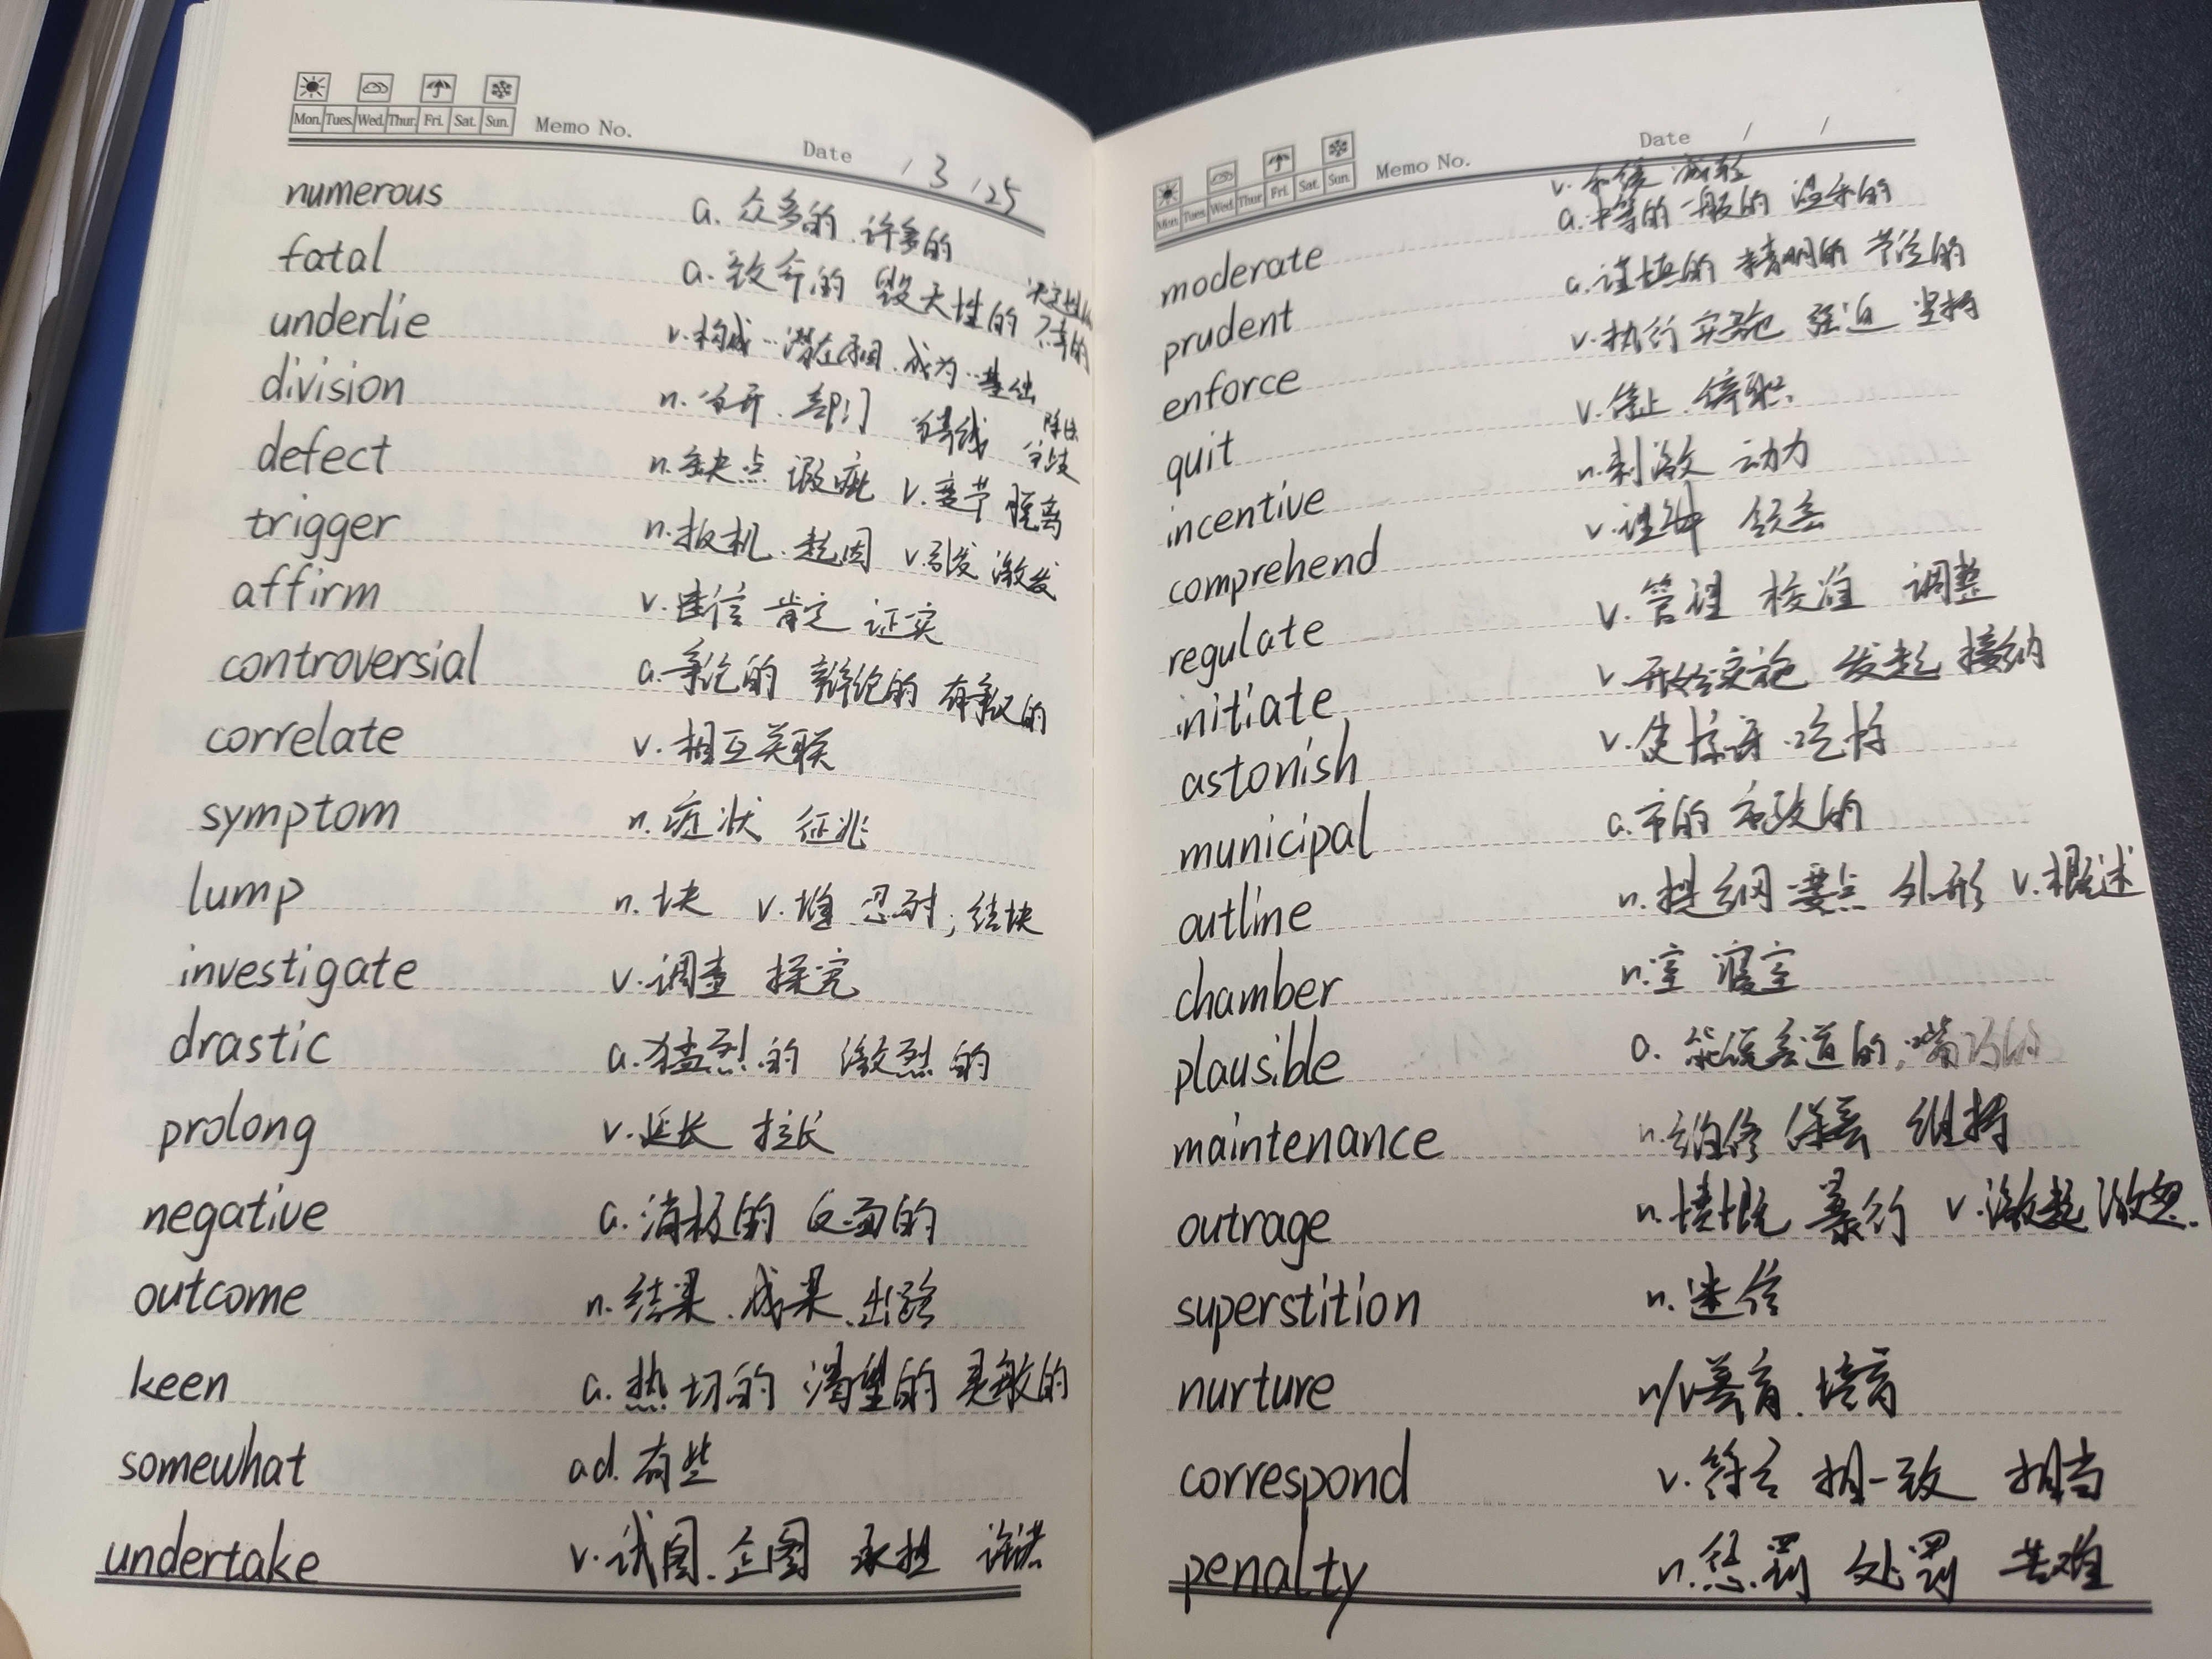 Mon. Tues. Wed. Thur. Fri. Sat. Sun. Memo No.
Date / 3 / 25
numerous a. 众多的 许多的
fatal a. 致命的 毁灭性的 决定性的 不幸的
underlie v. 构成…潜在原因 成为…基础
division n. 分开 部门 除法 分歧
defect n. 缺点 瑕疵 v. 变节 脱离
trigger n. 扳机 起因 v. 引发 激发
affirm v. 肯定 证实
controversial a. 争论的 辩论的 有争议的
correlate v. 相互关联
symptom n. 症状 征兆
lump n. 块 v. 堆 忍耐; 结块
investigate v. 调查 探究
drastic a. 猛烈的 激烈的
prolong v. 延长 拉长
negative a. 消极的 反面的
outcome n. 结果 成果 出路
keen a. 热切的 渴望的 灵敏的
somewhat ad. 有些
undertake v. 试图 企图 承担 许诺
Mon. Tues. Wed. Thur. Fri. Sat. Sun. Memo No. Date / /
v. 和缓 减轻
moderate a. 中等的 一般的 温和的
prudent a. 谨慎的 精明的 节俭的
enforce v. 执行 实施 强迫 坚持
quit v. 停止 辞职
incentive n. 刺激 动力
comprehend v. 理解 领会
regulate v. 管理 校准 调整
initiate v. 开始实施 发起 接纳
astonish v. 使惊讶 吃惊
municipal a. 市的 市政的
outline n. 提纲 要点 外形 v. 概述
chamber n. 室 寝室
plausible a. 能说会道的, 嘴巧的
maintenance n. 维修 保养 维持
outrage n. 愤慨 暴行 v. 激起 激怒.
superstition n. 迷信
nurture n/v 养育 培育
correspond v. 符合 相一致 相当
penalty n. 惩罚 处罚 苦难